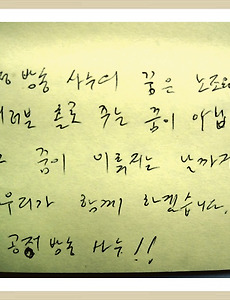 방송 사수의 꿈은 노조와
여러분 홀로 꾸는 꿈이 아닙
꿈이 이뤄지는 날까지
우리가 함께 하겠습니다.
공정 방송 사수!!